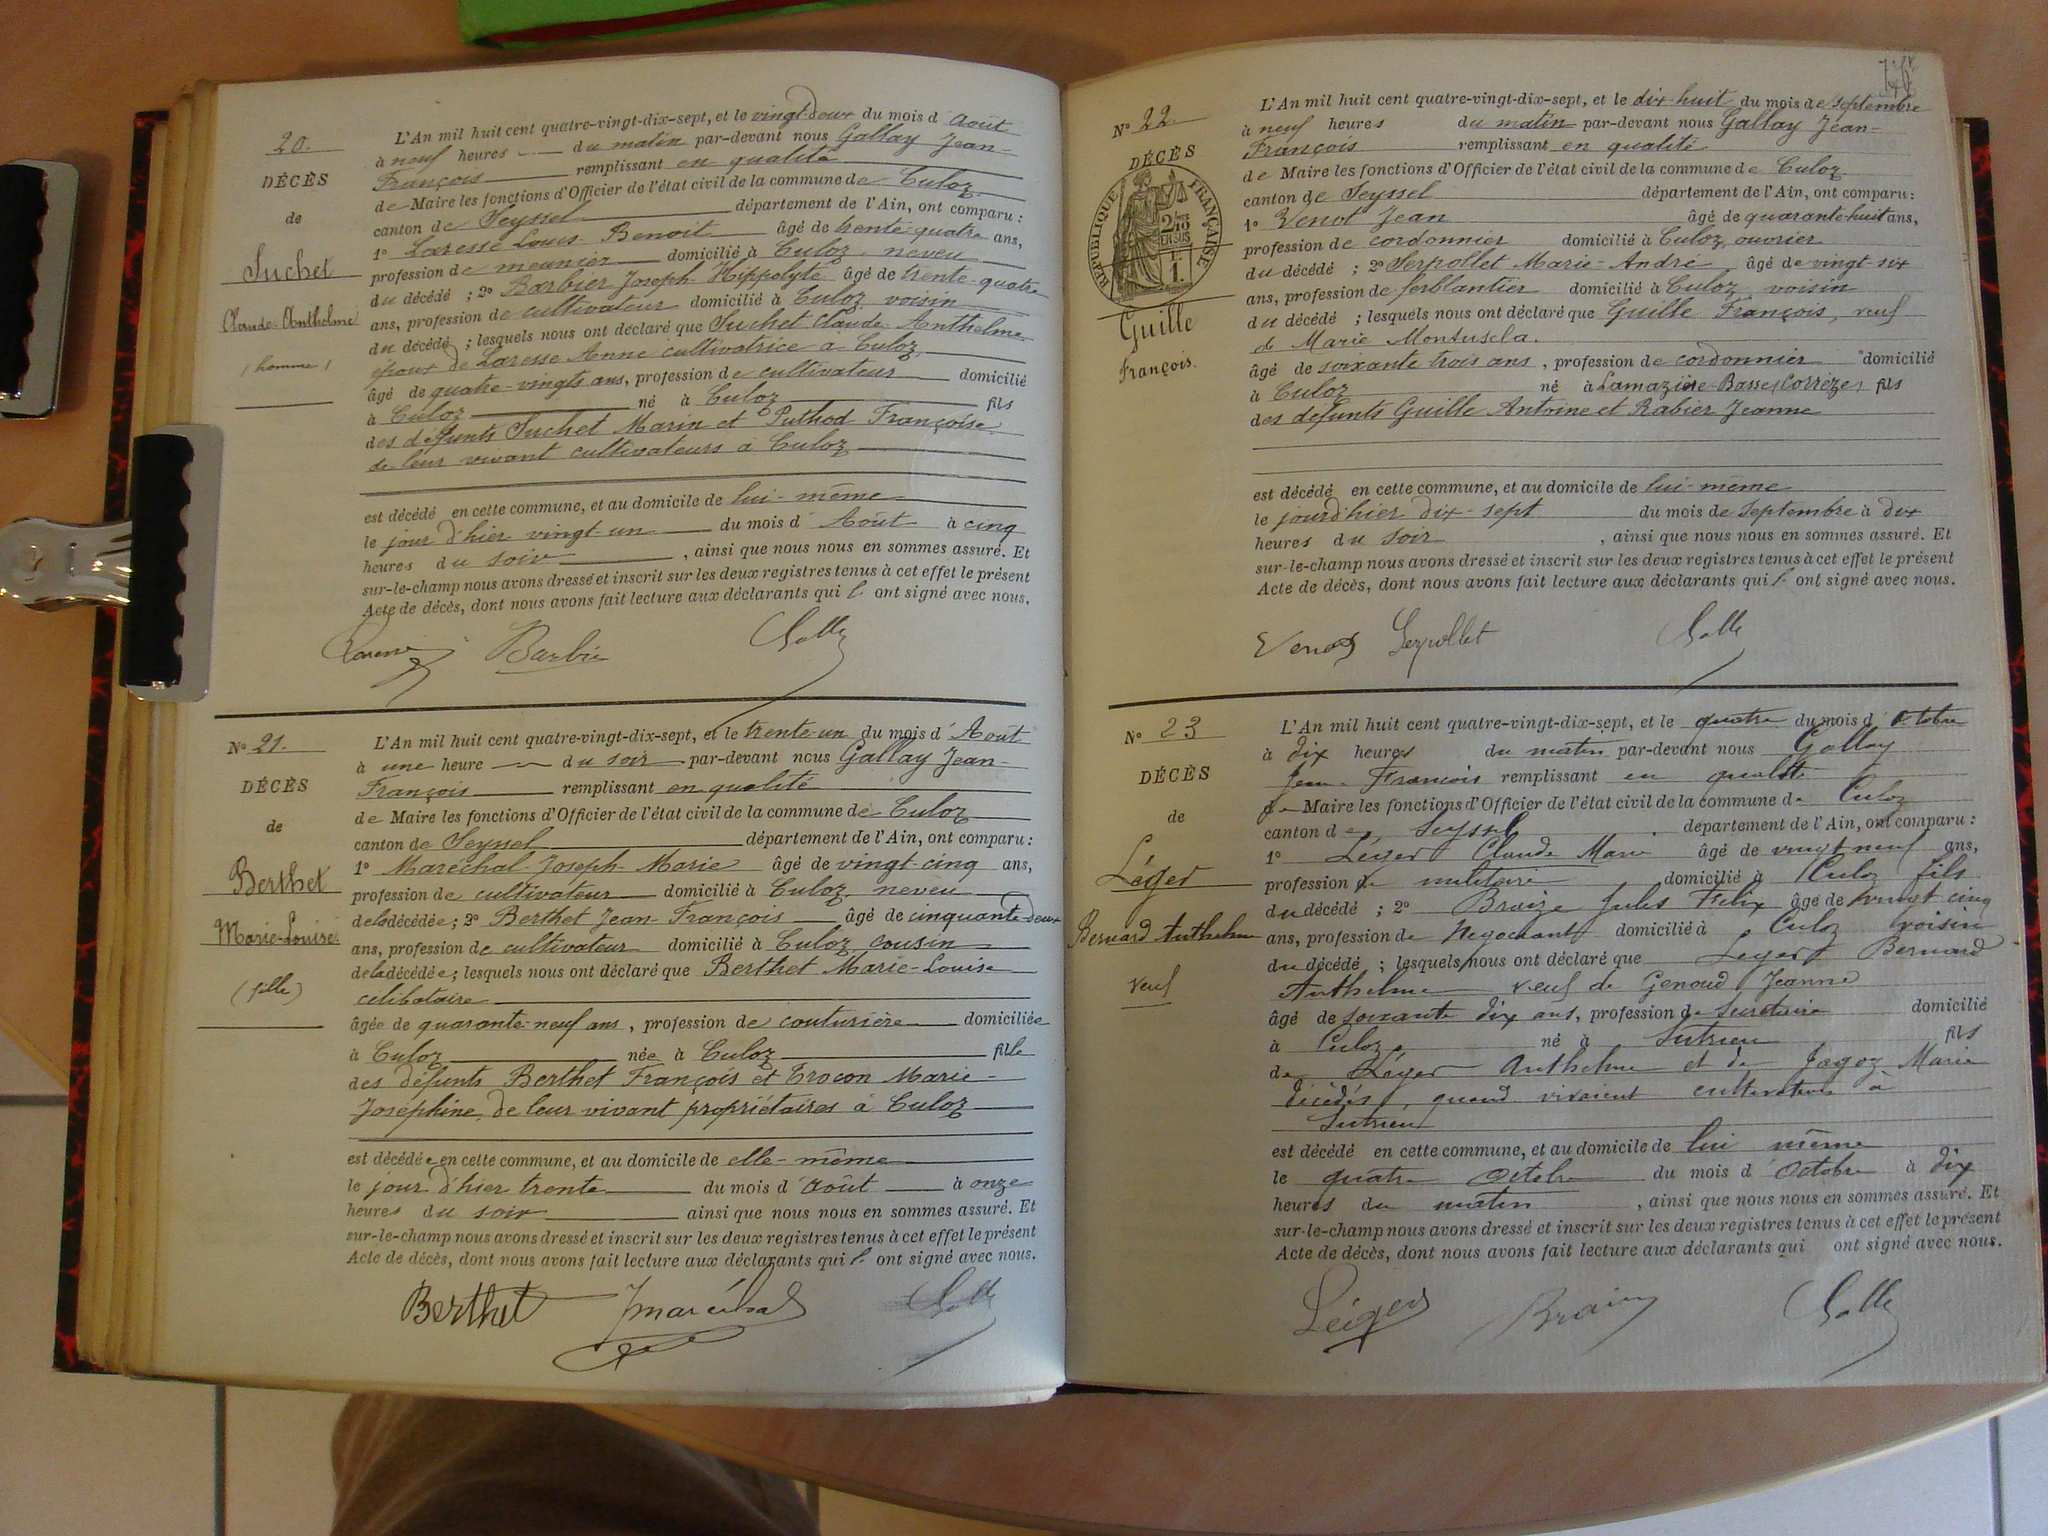 20.
DÉCÈS
de
Suchet
Claude-Anthelme
(homme)
L'An mil huit cent quatre-vingt-dix-sept, et le vingt-deux du mois d Août
à neuf heures du matin par-devant nous Gallay Jean-
François remplissant en qualité
de Maire les fonctions d'Officier de l'état civil de la commune de Culoz
canton de Seyssel département de l'Ain, ont comparu :
1° Laresse Louis-Benoit âgé de trente-quatre ans,
profession de meunier domicilié à Culoz, neveu
du décédé ; 2° Barbier Joseph-Hippolyte âgé de trente-quatre
ans, profession de cultivateur domicilié à Culoz voisin
du décédé ; lesquels nous ont déclaré que Suchet Claude-Anthelme
époux de Laresse Anne cultivatrice a Culoz
âgé de quatre-vingts ans, profession de cultivateur domicilié
à Culoz né à Culoz fils
des défunts Suchet Marin et Puthod Françoise
de leur vivant cultivateurs à Culoz
est décédé en cette commune, et au domicile de lui-même
le jour d'hier vingt-un du mois d' Août à cinq
heures du soir, ainsi que nous nous en sommes assuré. Et
sur-le-champ nous avons dressé et inscrit sur les deux registres tenus à cet effet le présent
Acte de décès, dont nous avons fait lecture aux déclarants qui l' ont signé avec nous.
Barbier
N° 21.
DÉCÈS
de
Berthet
Marie-Louise
(fille)
L'An mil huit cent quatre-vingt-dix-sept, et le trente-un du mois d' Août
à une heure du soir par-devant nous Gallay Jean-
François remplissant en qualité
de Maire les fonctions d'Officier de l'état civil de la commune de Culoz
canton de Seyssel département de l'Ain, ont comparu :
1° Maréchal Joseph-Marie âgé de vingt-cinq ans,
profession de cultivateur domicilié à Culoz, neveu
de la décédée ; 2° Berthet Jean-François âgé de cinquante-deux
ans, profession de cultivateur domicilié à Culoz, cousin
de la décédée ; lesquels nous ont déclaré que Berthet Marie-Louise
célibataire
âgée de quarante-neuf ans, profession de couturière domiciliée
à Culoz née à Culoz fille
des défunts Berthet François et Trocon Marie-
Joséphine, de leur vivant propriétaires à Culoz
est décédée en cette commune, et au domicile de elle-même
le jour d'hier trente du mois d' Août à onze
heures du soir ainsi que nous nous en sommes assuré. Et
sur-le-champ nous avons dressé et inscrit sur les deux registres tenus à cet effet le présent
Acte de décès, dont nous avons fait lecture aux déclarants qui l' ont signé avec nous.
Berthet Jmaréchal
N° 22.
DÉCÈS
RÉPUBLIQUE FRANÇAISE
2/10
EN SUS
1
Guille
François.
L'An mil huit cent quatre-vingt-dix-sept, et le dix-huit du mois de Septembre
à neuf heures du matin par-devant nous Gallay Jean-
François remplissant en qualité
de Maire les fonctions d'Officier de l'état civil de la commune de Culoz
canton de Seyssel département de l'Ain, ont comparu :
1° Venot Jean âgé de quarante-huit ans,
profession de cordonnier domicilié à Culoz, ouvrier
du décédé ; 2° Serpollet Marie-André âgé de vingt-six
ans, profession de ferblantier domicilié à Culoz voisin
du décédé ; lesquels nous ont déclaré que Guille François, veuf
d Marie Montusela.
âgé de soixante trois ans, profession de cordonnier domicilié
à Culoz né à Lamazière-Basse (Corrèze) fils
des défunts Guille Antoine et Rabier Jeanne
est décédé en cette commune, et au domicile de lui-même
le jour d'hier dix-sept du mois de Septembre à dix
heures du soir, ainsi que nous nous en sommes assuré. Et
sur-le-champ nous avons dressé et inscrit sur les deux registres tenus à cet effet le présent
Acte de décès, dont nous avons fait lecture aux déclarants qui l' ont signé avec nous.
Venot Serpollet
N° 23
DÉCÈS
de
Léger
Bernard Anthelme
veuf
L'An mil huit cent quatre-vingt-dix-sept, et le quatre du mois d' Octobre
à dix heures du matin par-devant nous Gallay
Jean-François remplissant en qualité
de Maire les fonctions d'Officier de l'état civil de la commune de Culoz
canton de Seyssel département de l'Ain, ont comparu :
1° Léger Claude Marie âgé de vingt neuf ans,
profession de militaire domicilié à Culoz fils
du décédé ; 2° Braize Jules Félix âgé de vingt cinq
ans, profession de Négociant domicilié à Culoz voisin
du décédé ; lesquels nous ont déclaré que Léger Bernard
Anthelme veuf de Genoud Jeanne
âgé de soixante dix ans, profession de Secrétaire domicilié
à Culoz né à Sutrieu fils
de Léger Anthelme et de Jagoz Marie
décédés, quand vivaient cultivateurs à
Sutrieu
est décédé en cette commune, et au domicile de lui même
le quatre Octobre du mois d' Octobre à dix
heures du matin, ainsi que nous nous en sommes assuré. Et
sur-le-champ nous avons dressé et inscrit sur les deux registres tenus à cet effet le présent
Acte de décès, dont nous avons fait lecture aux déclarants qui ont signé avec nous.
Léger